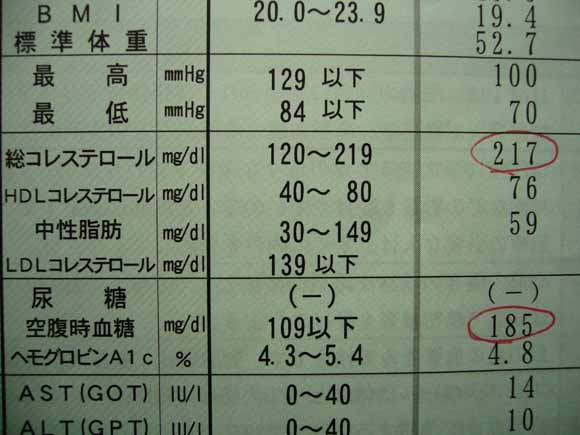 BMI 20.0～23.9 19.4
標準体重 52.7
最高 mmHg 129 以下 100
最低 mmHg 84 以下 70
総コレステロール mg/dl 120～219 217
HDLコレステロール mg/dl 40～ 80 76
中性脂肪 mg/dl 30～149 59
LDLコレステロール mg/dl 139 以下
尿糖 (－) (－)
空腹時血糖 mg/dl 109以下 185
ヘモグロビンA1c % 4.3～5.4 4.8
AST(GOT) IU/l 0～40 14
ALT(GPT) IU/l 0～40 10